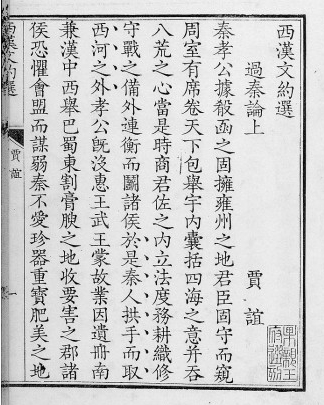 西漢文約選
過秦論上　賈誼
秦孝公據殽函之固擁雍州之地君臣固守而窺
周室有席卷天下包舉宇內囊括四海之意并吞
八荒之心當是時商君佐之內立法度務耕織修
守戰之備外連衡而鬭諸侯於是秦人拱手而取
西河之外孝公既沒惠王武王蒙故業因遺冊南
兼漢中西舉巴蜀東割膏腴之地收要害之郡諸
侯恐懼會盟而謀弱秦不愛珍器重寶肥美之地
賈誼
一